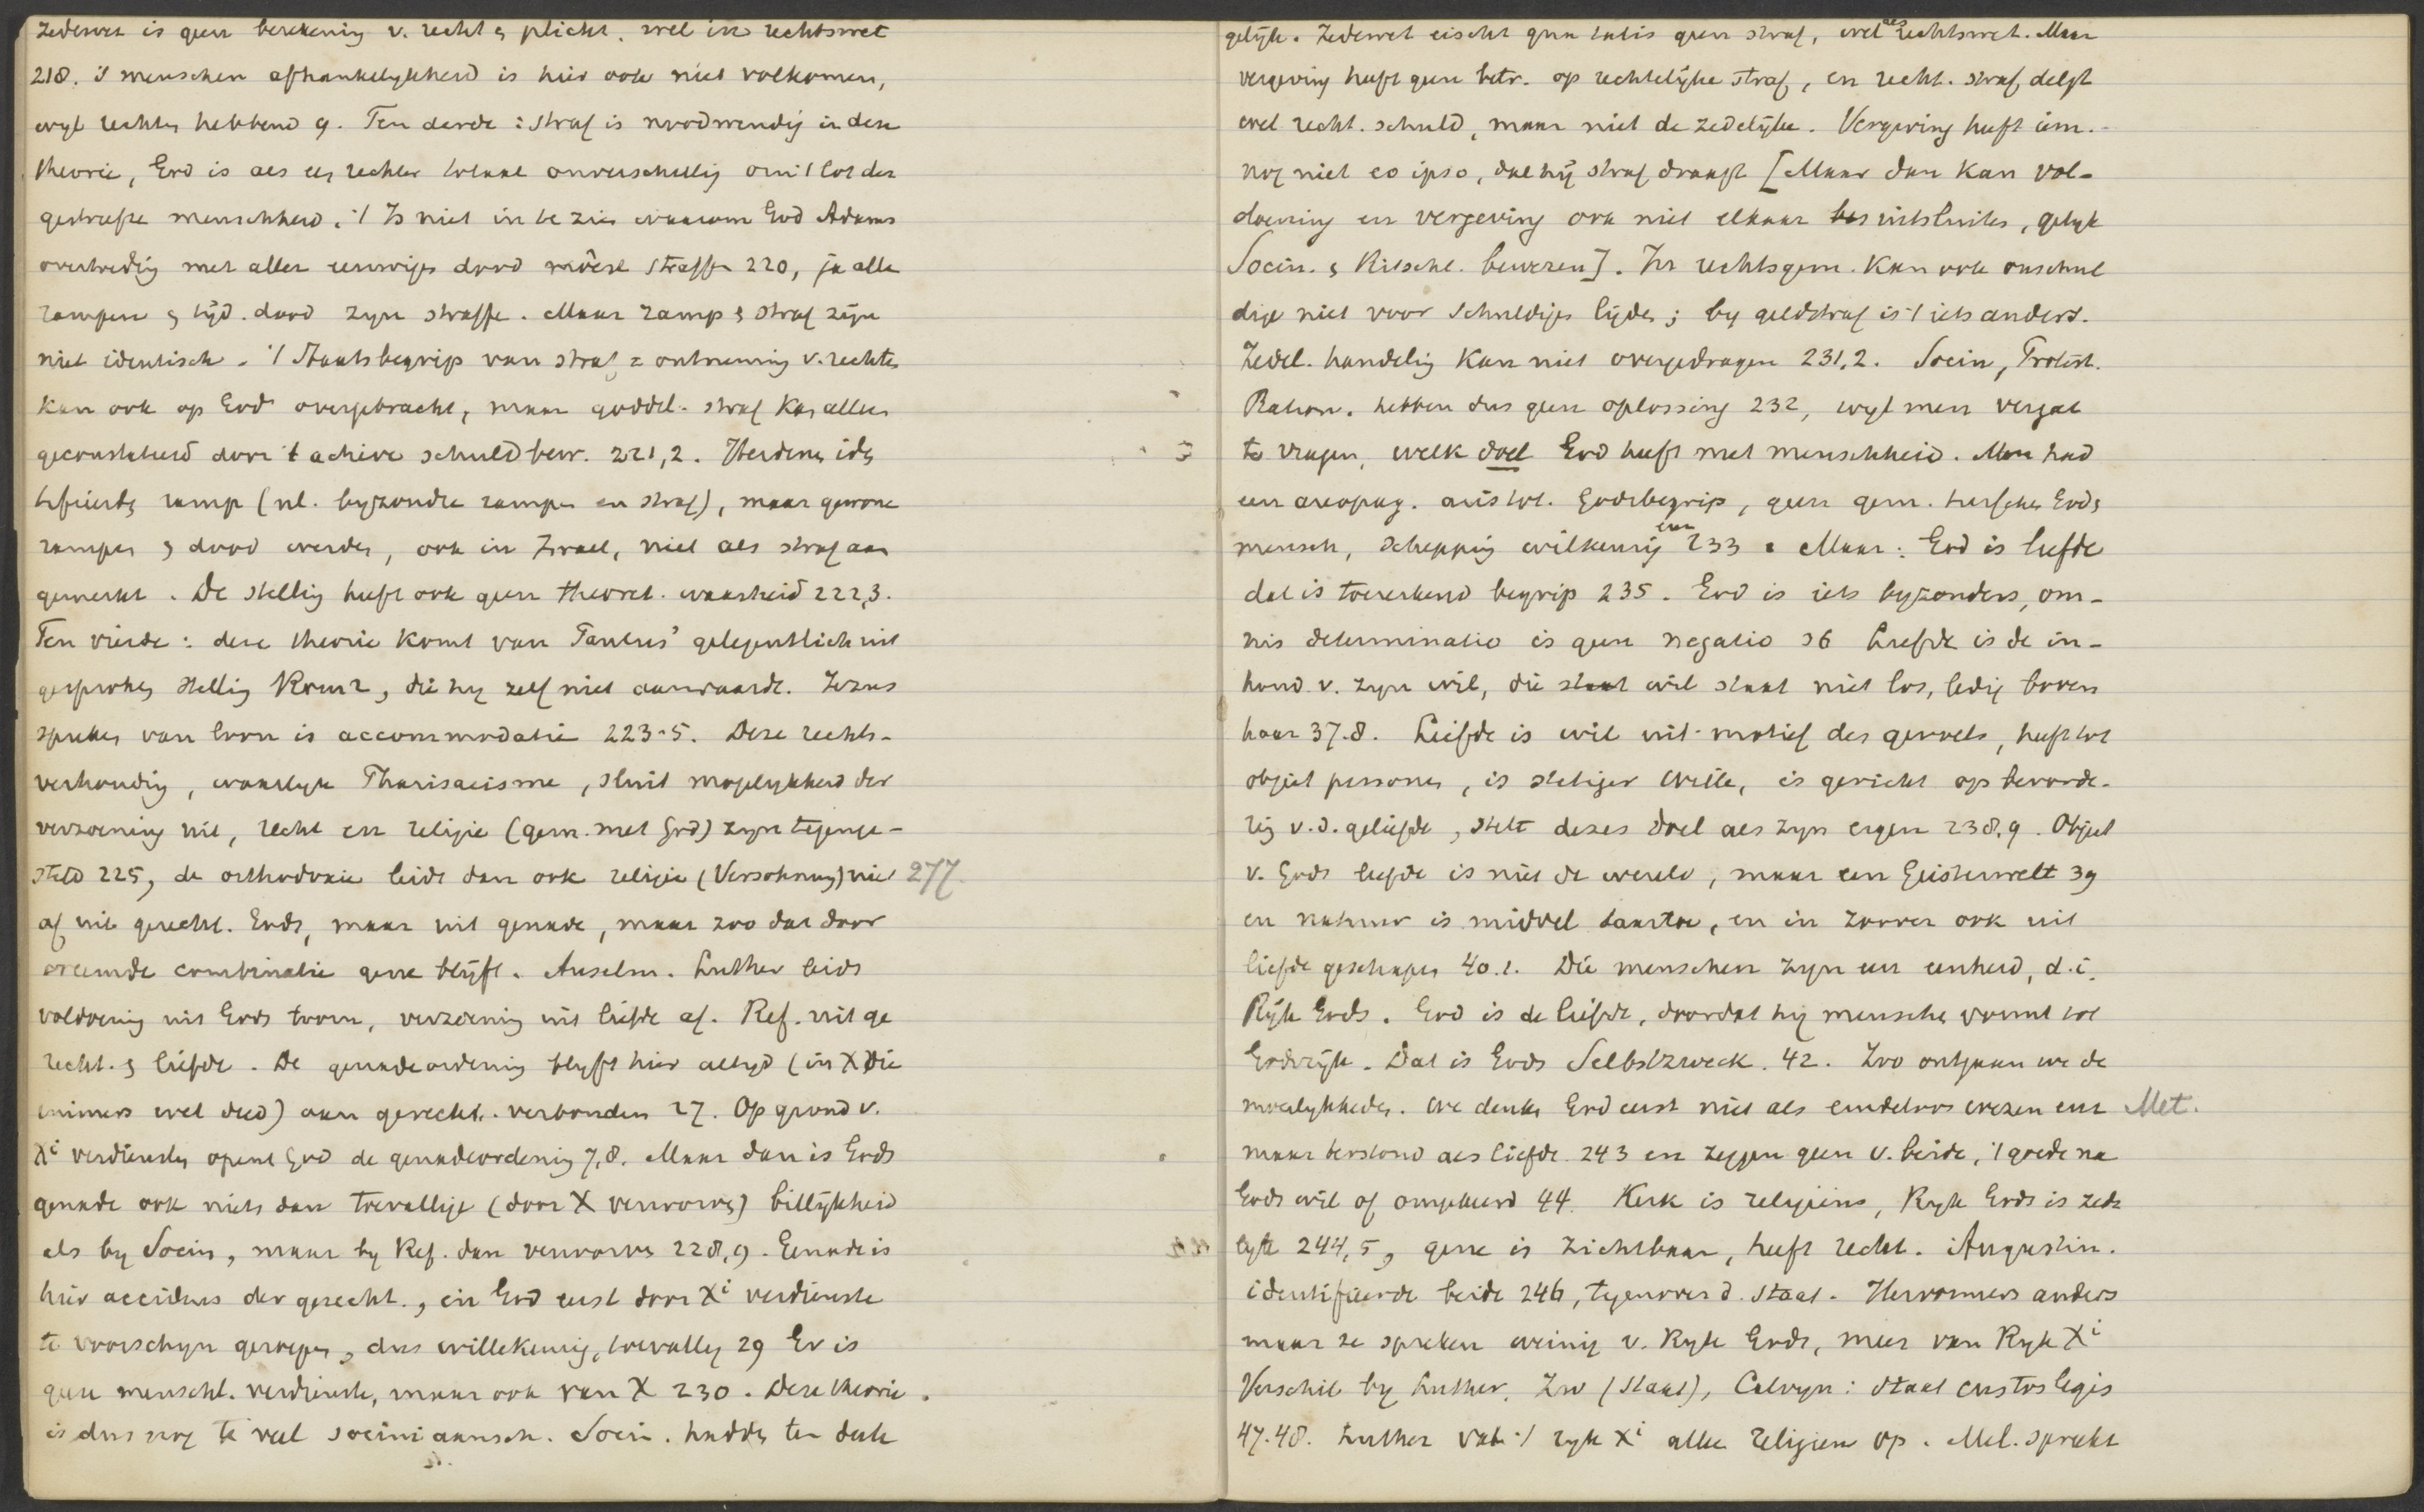 zedewet is geen berekening v. recht & plicht, wel in rechtswet
218. 's menschen afhankelykheid is hier ook niet volkomen,
wyl rechten hebbend 9. Ten derde: straf is noodwendig in deze
theorie, God is als een rechter totaal onverschillig om 't lot der
gestrafte menschheid. 't Is niet in te zien waarom God Adams
overtreding met aller eeuwigen dood moest straffen 220, ja alle
rampen & tijd. dood zyn straffen. Maar ramp & straf zijn
niet identisch. 't Staatsbegrip van straf = ontneming v. rechten
kan ook op God overgebracht, maar goddel. straf kan alleen
geconstateerd door 't actieve schuldbew. 221,2. Heidenen iden
tifieerden ramp (nl. byzondre rampen en straf), maar gewone
rampen & dood werden, ook in Israel, niet als straf aan
gemerkt. De stelling heeft ook geen theoret. waarheid 222,3.
Ten vierde: deze theorie komt van Paulus' gelegentlich uit
gesproken stelling Rom 2, die hy zelf niet aanvaardt. Jezus
spreken van loon is accommodatie 223-5. Deze rechts-
verhouding, waarlyk Pharisaeisme, sluit mogelykheid der
verzoening uit, recht en religie (gem. met God) zyn tegenge-
steld 225, de orthodoxie leidt dan ook religie (Versohnung) niet 277
af uit gerecht. Gods, maar uit genade, maar zoo dat door
vreemde combinatie gene blijft. Anselm. Luther leidt
voldoening uit Gods toorn, verzoening uit liefde af. Ref. uit ge
recht. & liefde. De genadeordening blyft hier altyd (in X die
immers wet deed) aan gerecht. verbonden 27. Op grond v.
Xi verdiensten opent God de genadeordening 7,8. Maar dan is Gods
genade ook niets dan toevallige (door X verworven) billijkheid
als by Socin, maar by Ref. dan verworven 228,9. Genade is
hier accidens der gerecht., in God eerst door Xi verdienste
te voorschyn geroepen, dus willekeurig, toevallig 29 Er is
geen menschl. verdienste, maar ook van X 230. Deze theorie
is dus nog te veel sociniaansch. Socin. hadden ten deele
gelijk. Zedewet eischt qua talis geen straf, wel als rechtswet. Maar
vergeving heeft geen betr. op rechtelijke straf, en recht. straf delgt
wel recht. schuld, maar niet de zedelijke. Vergeving heeft iem.
nog niet eo ipso, dat hij straf draagt [Maar dan kan vol-
doening en vergeving ook niet elkaar uitsluiten, gelyk
Socin. & Ritschl. beweren]. In rechtsgem. kan ook onschul
dige niet voor schuldigen lijden; by geldstraf is 't iets anders.
Zedel. handeling kan niet overgedragen 231,2. Socin, Protest.
Ration. hebben dus geen oplossing 232, wyl men vergat
te vragen, welk doel God heeft met menschheid. Men had
een areopag. aristot. Godsbegrip, geen gem. tusschen God &
mensch, schepping willekeurig enz 233. Maar: God is liefde
dat is toereikend begrip 235. God is iets byzonders, om-
nis determinatio is geen negatio 36 Liefde is de in-
houd v. zyn wil, die wil staat niet los, ledig boven
haar 37.8. Liefde is wil uit motief des gevoels, heeft tot
object personen, is stetiger Wille, is gericht op bevorde-
ring v. d. geliefde, stelt dezes doel als zyn eigen 238,9. Object
v. Gods liefde is niet de wereld, maar een Geisterwelt 39
en natuur is middel daartoe, en in zoover ook uit
liefde geschapen 40.1. Die menschen zyn een eenheid, d.i.
Rijk Gods. God is de liefde, doordat hij menschen vormt tot
Godsrijk. Dat is Gods Selbstzweck. 42. Zoo ontgaan we de
moeilykheden. We denken God eerst niet als eindeloos wezen enz Met.
maar terstond als liefde 243 en zeggen geen v. beide, 't goede na
Gods wil of omgekeerd 44. Kerk is religieus, Ryk Gods is zede
lyk 244,5, gene is zichtbaar, heeft recht. Augustin.
identifieerde beide 246, tegenover d. staat. Hervormers anders
maar ze spreken weinig v. Ryk Gods, meer van Ryk Xi
Verschil by Luther, Zw (staat), Calvyn: staat custos legis
47.48. Luther vat 't ryk Xi alleen religieus op. Mel. spreekt